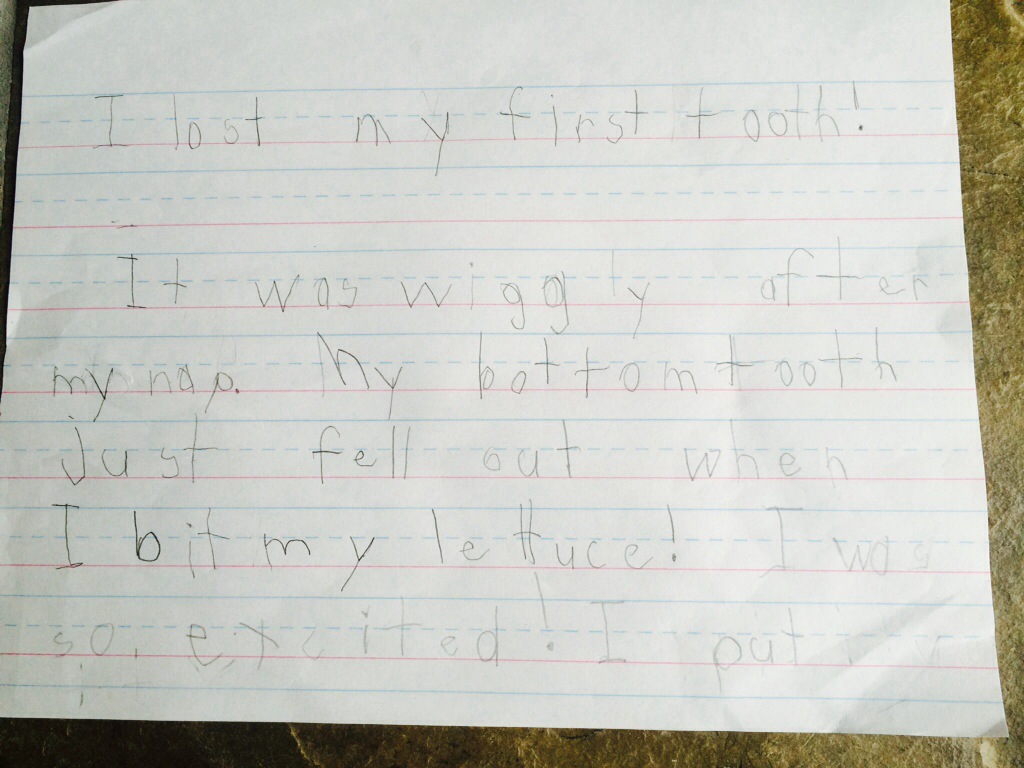 I lost my first tooth!
It was wiggly after
my nap. My bottom tooth
just fell out when
I bit my lettuce! I was
so exzited! I put